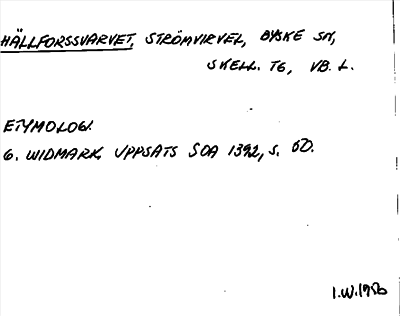 HÄLLFORSSVARVET, STRÖMVIRVEL, BYSKE SN,
SKELL. TG, VB. L.
ETYMOLOGI.
G. WIDMARK, UPPSATS SOA 1392, S. 60.
I.W. 1950